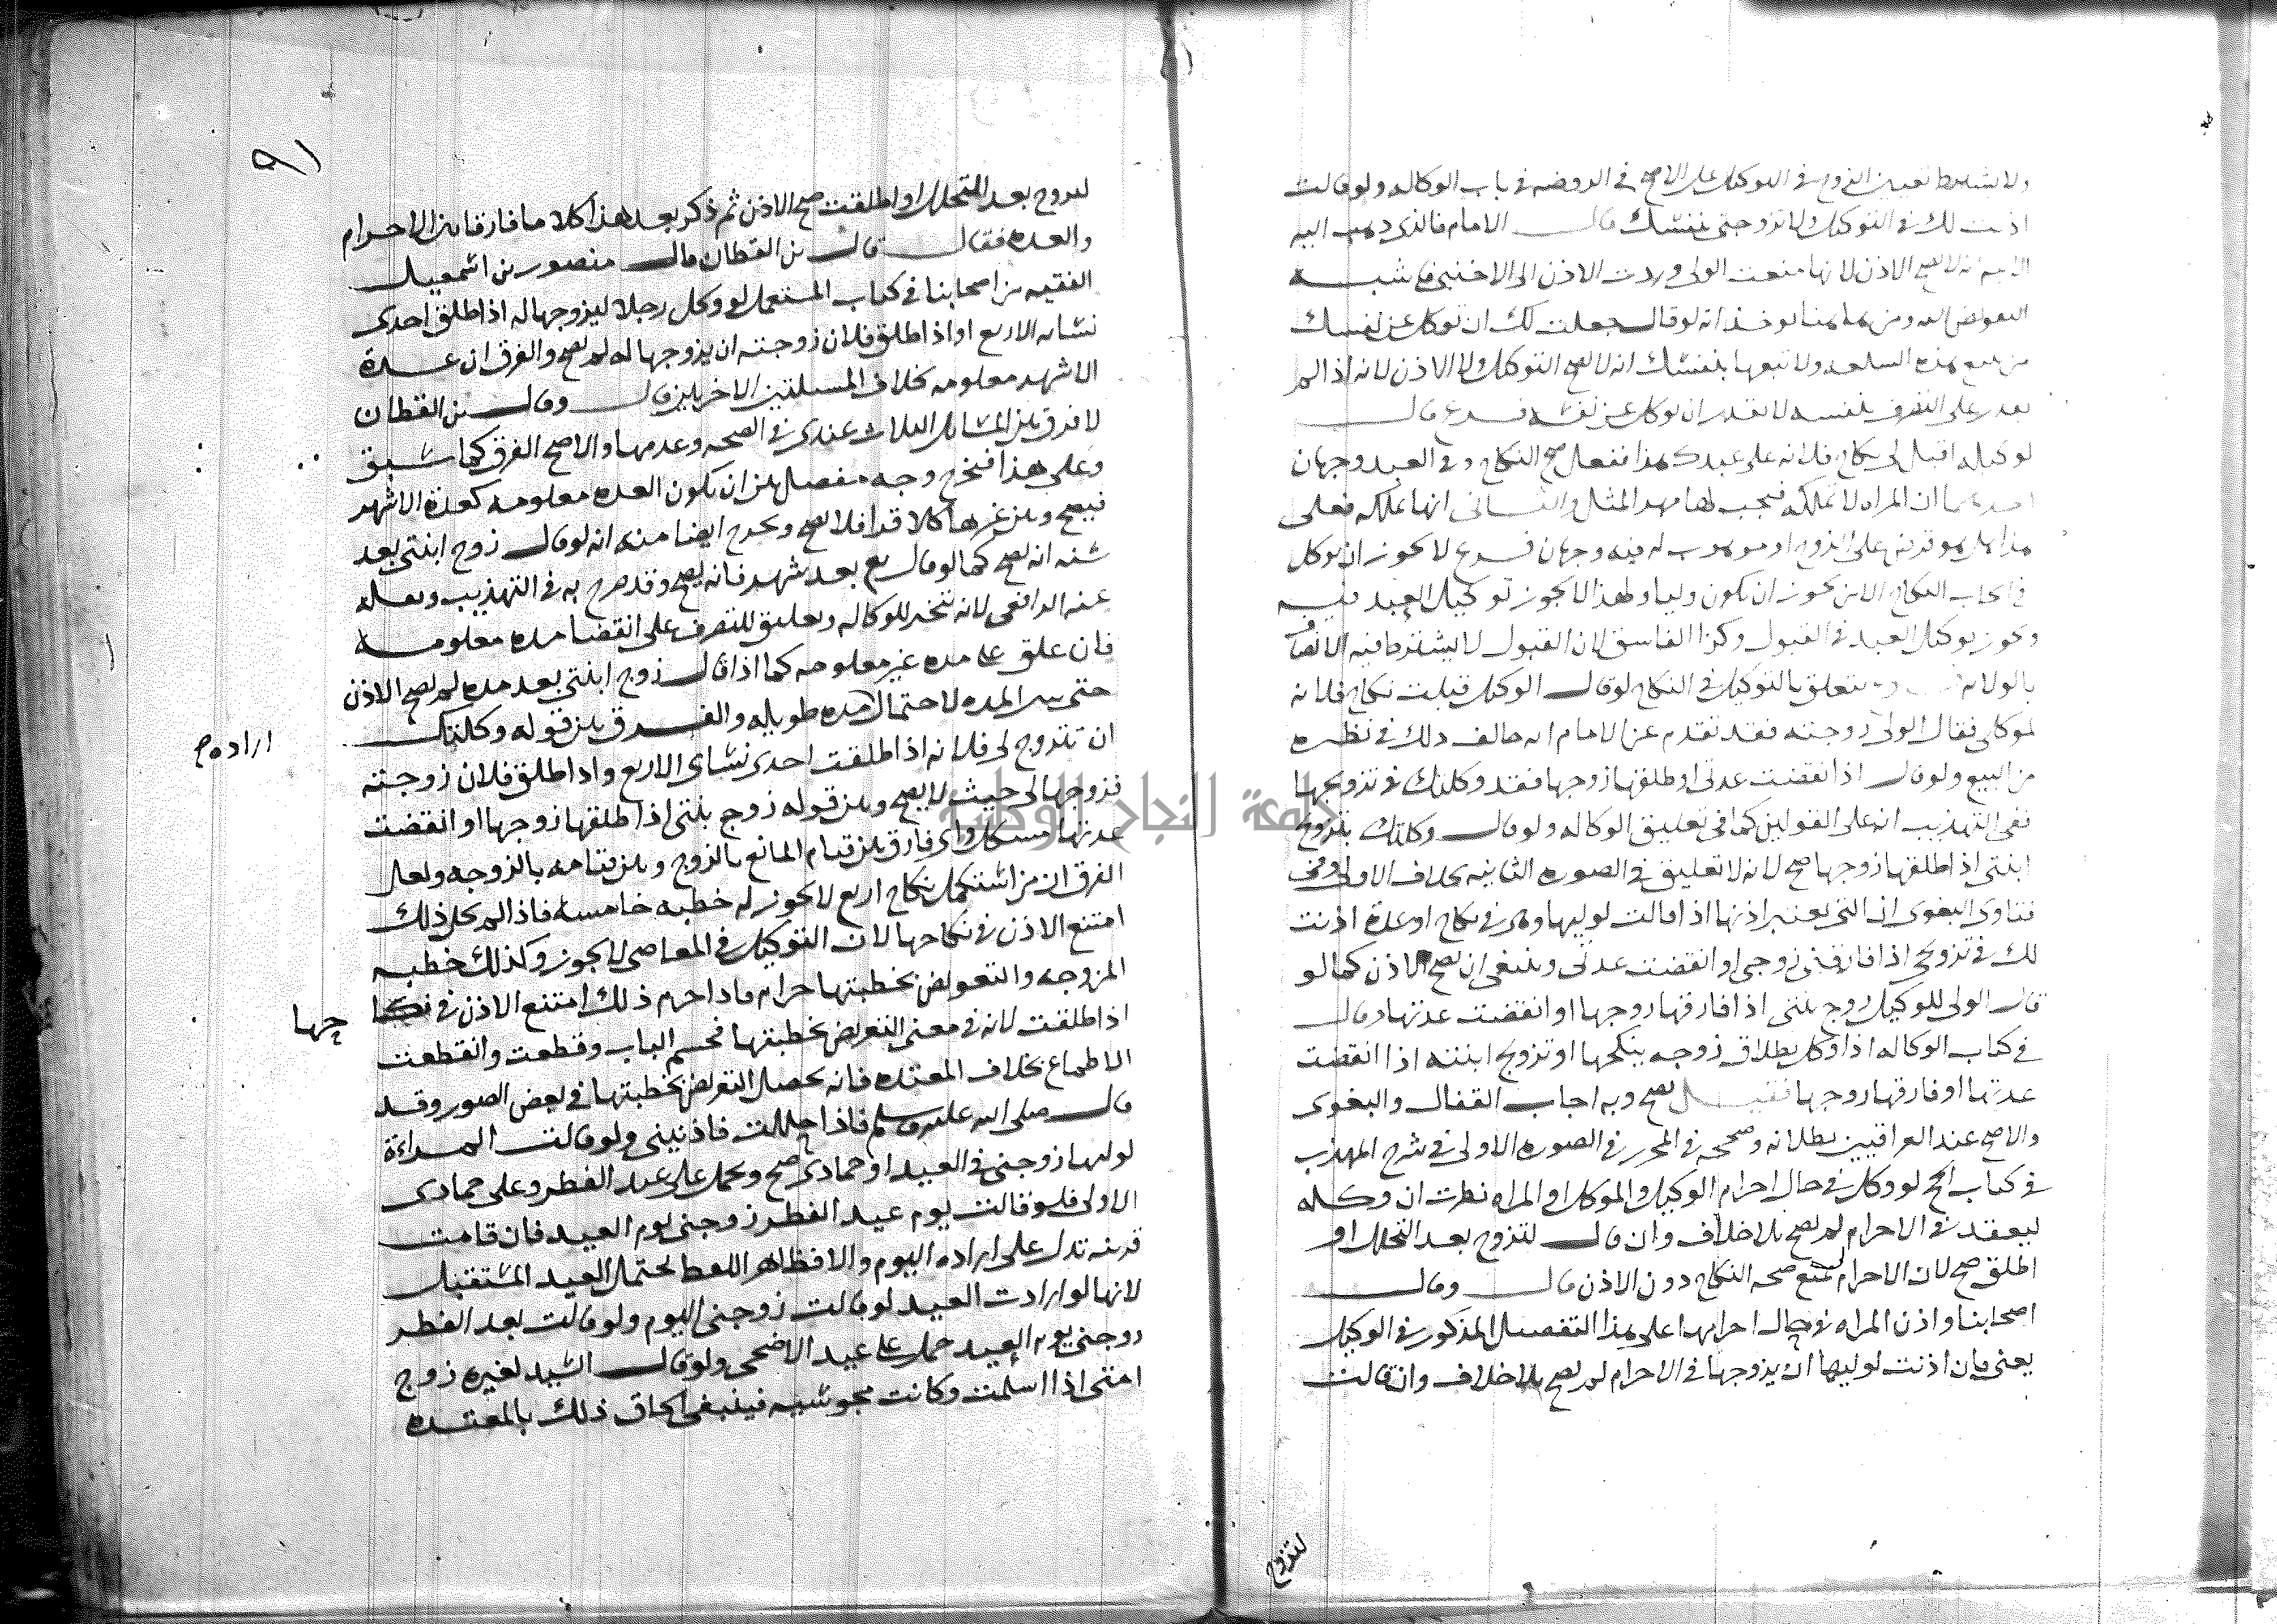 ولا يشترط تعيين الزوج في التوكيل على الاصح في الروضه في باب الوكاله ولو قالت
اذنت لك في التوكيل ولا تزوجني بنفسك قال الامام فالذي ذهب اليه
الايمه انه لا يصح الاذن لانها منعت الولي وردت الاذن الى الاجنبي فاشبه
التفويض اليه ومن هاهنا يوخذ انه لو قال جعلت لك ان توكل عن نفسك
من يبيع هذه السلعه ولا تبعها بنفسك انه لا يصح التوكيل ولا الاذن لانه اذا لم
يقدر على التصرف بنفسه لا يقدر ان يوكل عن نفسه فرع قال
لوكيله اقبل لي نكاح فلانه على عبدك هذا ففعل صح النكاح وفي العبد وجهان
احدهما ان المراه لا تملكه فيجب لها مهر المثل والثاني انها تملكه فعلى
هذا هل هو قرض على الزوج او موهوب له فيه وجهان فرع لا يجوز ان يوكل
في ايجاب النكاح الا من يجوز ان يكون وليا ولهذا لا يجوز توكيل العبد فيه
ويجوز توكيل العبد في القبول وكذا الفاسق لان القبول لا يشترط فيه الاتصاف
بالولايه يتعلق بالتوكيل في النكاح لو قال الوكيل قبلت نكاح فلانه
لموكلي فقال الولي زوجته فقد تقدم عن الامام انه خالف ذلك في نظيره
من البيع ولو قال اذا انقضت عدتي او طلقها زوجها فقد وكلتك في تزويجها
ففي التهذيب انه على القولين كما في تعليق الوكاله ولو قال وكلتك بتزويج
ابنتي اذا طلقها زوجها صح لانه لا تعليق في الصوره الثانيه بخلاف الاولى وفي
فتاوى البغوي ان التي يعتبر اذنها اذا قالت لوليها وهي في نكاح او عدة اذنت
لك في تزويجي اذا فارقني زوجي او انقضت عدتي وينبغي ان يصح الاذن كما لو
قال الولي للوكيل زوج بنتي اذا فارقها زوجها او انقضت عدتها وقال
في كتاب الوكاله اذا وكل بطلاق زوجه ينكحها او تزويج ابنته اذا انقضت
عدتها او فارقها زوجها فقيل يصح وبه اجاب القفال والبغوي
والاصح عند العراقيين بطلانه وصححه في المحرر في الصوره الاولى في شرح المهذب
في كتاب الحج لو وكل في حال احرام الوكيل او الموكل او المراه نظرت ان وكله
ليعقد في الاحرام لم يصح بلا خلاف وان قال لتزوج بعد التحلل او
اطلق صح لان الاحرام يمنع صحه النكاح دون الاذن قال وقال
اصحابنا واذن المراه في حال احرامها على هذا التفصيل المذكور في الوكيل
يعني فان اذنت لوليها ان يزوجها في الاحرام لم يصح بلا خلاف وان قالت
لتزوج
٩١
لتزوج بعد التحلل او اطلقت صح الاذن ثم ذكر بعد هذا كلاما فارقا بين الاحرام
والعده فقال قال بن القطان قال منصور بن اسمعيل
الفقيه من اصحابنا في كتاب المستعمل لو وكل رجلا ليزوجها له اذا طلق احدى
نسايه الاربع او اذا طلق فلان زوجته ان يزوجها له لم يصح والفرق ان عدة
الاشهر معلومه بخلاف المسلتين الاخريين قال وقال بن القطان
لا فرق بين المسايل الثلاث عندي في الصحه وعدمها والاصح الفرق كما سبق
وعلى هذا فيخرج وجه مفصل بين ان يكون العده معلومه كعدة الاشهر
فيصح وبين غيرها كالاقرا فلا يصح ويخرج ايضا منه انه لو قال زوج ابنتي بعد
سنه انه يصح كما لو قال بع بعد شهر فانه يصح وقد صرح به في التهذيب ونقله
عنه الرافعي لانه تنجيز للوكاله وتعليق للتصرف على انقضا مده معلومه
فان علق على مده غير معلومه كما اذا قال زوج ابنتي بعد مده لم يصح الاذن
حتى يبين المده لاحتمال مده طويله والفرق بين قوله وكلتك
اراده ح
ان تزوج لي فلانه اذا طلقت احدى نساي الاربع واذا طلق فلان زوجته
فزوجها لي حيث لا يصح وبين قوله زوج بنتي اذا طلقها زوجها او انقضت
عدتها مشكل واي فارق بين قيام المانع بالزوج وبين قيامه بالزوجه ولعل
الفرق ان من استكمل نكاح اربع لا يجوز له خطبه خامسه فاذا لم يحل ذلك
امتنع الاذن في نكاحها لان التوكيل في المعاصي لا يجوز وكذلك خطبه
المزوجه والتعريض بخطبتها حرام فاذا حرم ذلك امتنع الاذن في نكا
حها
اذا طلقت لانه في معنى التعريض بخطبتها فحسم الباب وقطعت وانقطعت
الاطماع بخلاف المعتده فانه يحصل التعريض بخطبتها في بعض الصور وقد
قال صلى الله عليه وسلم فاذا حللت فاذنيني ولو قالت المراة
لوليها زوجني في العيد او جمادى صح ويحمل على عيد الفطر وعلى جمادى
الاولى فلو قالت يوم عيد الفطر زوجني يوم العيد فان قامت
قرينه تدل على اراده اليوم والا فظاهر اللفظ يحتمل العيد المستقبل
لانها لو ارادت العيد لو قالت زوجني اليوم ولو قالت بعد الفطر
زوجني يوم العيد حمل على عيد الاضحى ولو قال السيد لغيره زوج
امتي اذا اسلمت وكانت مجوسيه فينبغي الحاق ذلك بالمعتده
جامعة النجاح الوطنية